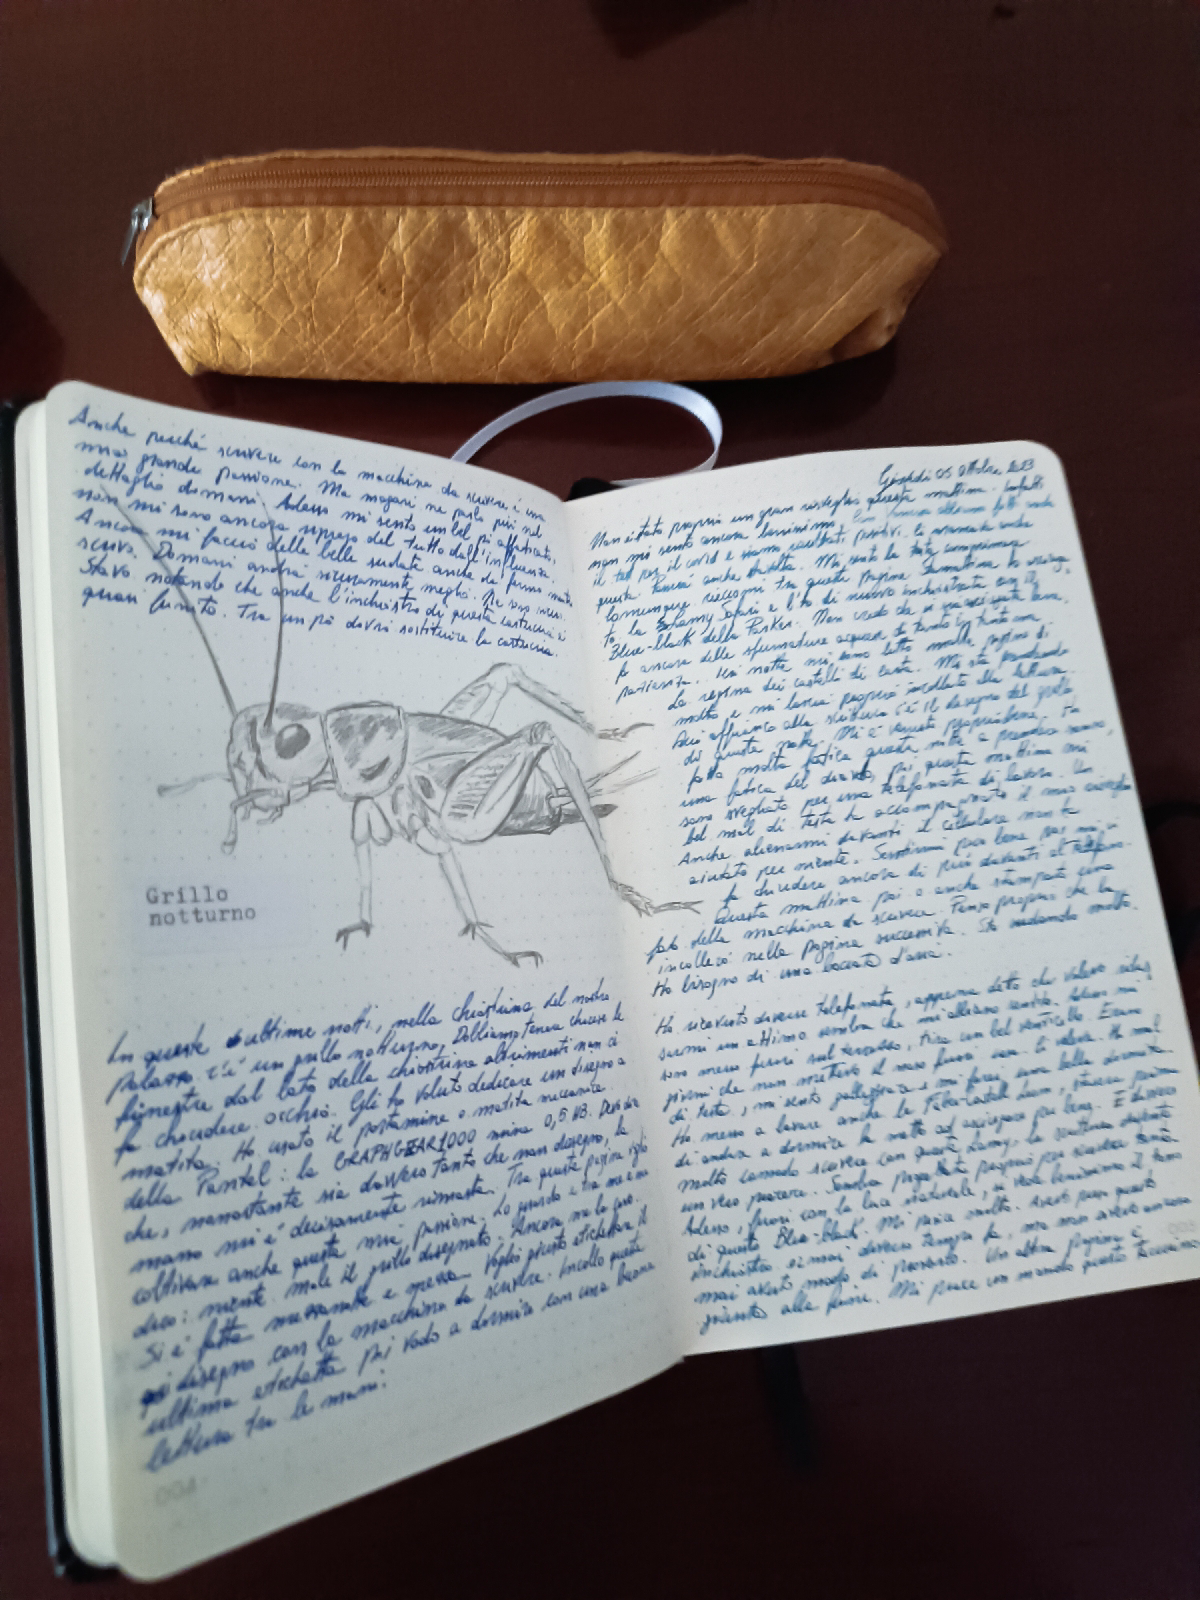 Anche perché scrivere con la macchina da scrivere è una
mia grande passione. Ma magari ne parlo più nel
dettaglio domani. Adesso mi sento un bel pò affaticato,
non mi sono ancora ripreso del tutto dall'influenza.
Ancora mi faccio delle belle sudate anche da fermo mentre
scrivo. Domani andrà sicuramente meglio. Ne sono sicuro.
Stavo notando che anche l'inchiostro di questa cartuccia è
quasi finito. Tra un pò dovrò sostituire la cartuccia.
Grillo
notturno
In queste ultime notti, nella chiostrina del nostro
palazzo c'è un grillo notturno. Dobbiamo tenere chiuse le
finestre dal lato della chiostrina altrimenti non ci
fa chiudere occhio. Gli ho voluto dedicare un disegno a
matita. Ho usato il portamine o matita meccanica
della Pentel: la GRAPHGEAR1000 mina 0,5 HB. Devo dire
che, nonostante sia davvero tanto che non disegno, la
mano mi è decisamente rimasta. Tra queste pagine voglio
coltivare anche questa mia passione. Lo guardo e tra me e me
dico: niente male il grillo disegnato. Ancora me la cavo.
Si è fatta mezzanotte e mezza. Voglio giusto etichettare il
disegno con la macchina da scrivere. Incollo questa
ultima etichetta poi vado a dormire con una buona
lettura tra le mani.
004
Giovedì 05 Ottobre 2023
Non è stato proprio un gran risveglio questa mattina. Infatti
non mi sento ancora benissimo. abbiamo fatto anche
il test per il covid e siamo risultati positivi.
questa anche stasera. Mi sento la testa compressa
Comunque rieccomi tra queste pagine. Stamattina ho
la Lamy Safari e l'ho di nuovo inchiostrata con il
Blue-black della Parker. Non credo che si sia
fa ancora delle sfumature acquose di tanto in tanto ma
pazienza. Ieri notte mi sono letto molte pagine di
La regina dei castelli di carta. Mi sta prendendo
molto e mi lascia proprio incollato alla lettura.
Qui affianco alla scrittura c'è il disegno del grillo
di questa notte. Mi è venuto proprio bene. Ho
fatto molta fatica questa notte a prendere sonno,
una fatica del diavolo, poi questa mattina mi
sono svegliato per una telefonata di lavoro. Un
bel mal di testa ha accompagnato il mio risveglio.
Anche alienarmi davanti il cellulare non ha
aiutato per niente. Sentirmi poco bene poi mi
fa chiudere ancora di più davanti al telefono.
Questa mattina poi ho anche stampato una
foto della macchina da scrivere. Penso proprio che la
incollerò nella pagina successiva. Sto sudando molto.
Ho bisogno di una boccata d'aria.
Ho ricevuto diverse telefonate, appena detto che volevo
un attimo sembra che mi abbiano sentito. Adesso mi
sono messo fuori sul terrazzo, tira un bel venticello. Erano
giorni che non mettevo il naso fuori casa. Ci voleva. Ho mal
di testa, mi sento e mi farei una bella dormita.
Ho messo a lavare anche la Faber-Castell Loom, stasera prima
di andare a dormire la metto ad asciugare per bene. È davvero
molto comodo scrivere con questa Lamy. La scrittura diventa
un vero piacere. Sembra progettata proprio per scrivere tanto.
Adesso, fuori con la luce naturale, si vede benissimo il tono
di questo Blue-black. Mi piace molto. Avevo preso questo
inchiostro ormai diverso tempo fa, ma non avevo ancora
mai avuto modo di provarlo. Un'altra pagina è
giunta alla fine. Mi piace un mondo questo taccuino
005